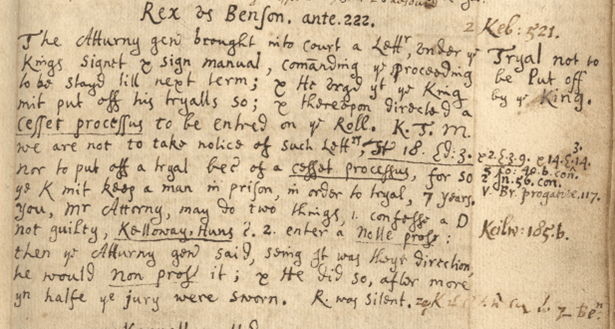 Rex vs Benson. ante. 222.
The Atturny gen̄ brought into court a Lettʳ, under yᵉ
Kings signet & sign manual, comanding yᵉ Proceeding
to be stayd till next term; & He urgd yt yᵉ King
mit put off his tryalls so; & thereupon directed a
cesset processus to be entred on yᵉ Roll. K. T. M.
we are not to take notice of such Lettʳˢ, St 18. Ed: 3.
nor to put off a tryal bec̄ of a cesset processus, for so
yᵉ K mit keep a man in prison, in order to tryal, 7 years.
you, Mr Attorny, may do two things, 1. confesse a D
not guilty, Kelloway, Huns ?. 2. enter a Nolle prosꝫ:
then yᵉ Atturny gen̄ said, seing it was theyr direction,
he would Non prosꝫ it; & He did so, after more
yn halfe yᵉ jury were sworn. R. was silent.
2 Keb: 521.
Tryal not to
be Put off
by yᵉ King.
3.
& 2. E. 3. 9. & 14. E. 14.
5 fo: 40. b. con.
2 n. 56. con.
V. Br. progative. 117.
Keilw: 185. b.